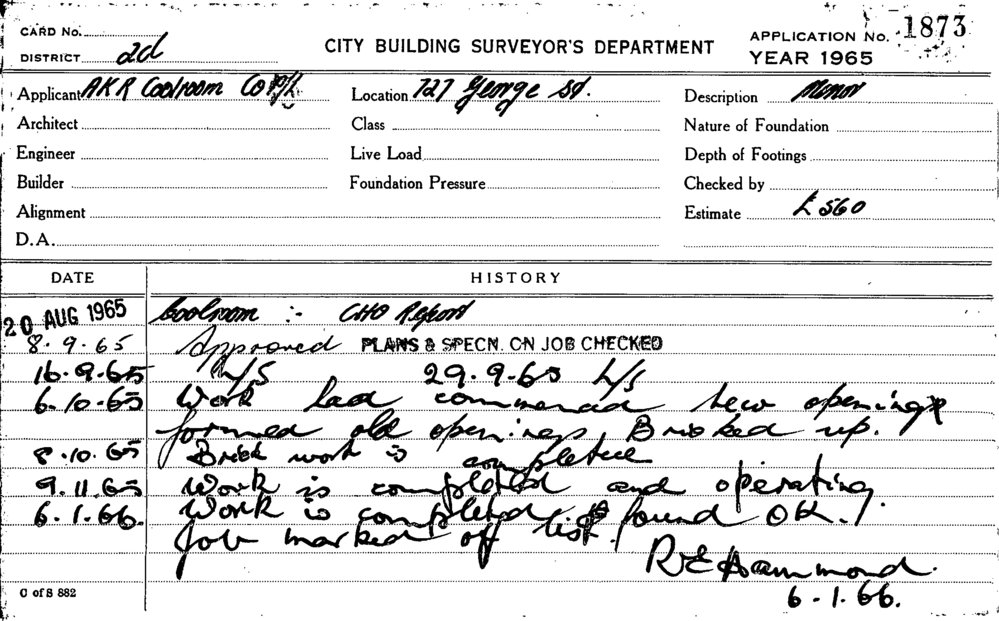 CARD No.
DISTRICT 2d
CITY BUILDING SURVEYOR'S DEPARTMENT
APPLICATION No. 1873
YEAR 1965
Applicant AKR Coolroom Co P/L Location 727 George St. Description Minor
Architect Class Nature of Foundation
Engineer Live Load Depth of Footings
Builder Foundation Pressure Checked by
Alignment Estimate £560
D.A.
DATE HISTORY
20 AUG 1965 Coolroom :- CHO Report
8.9.65 Approved PLANS & SPECN. ON JOB CHECKED
16.9.65 L/S 29.9.65 L/S
6.10.65 Work has commenced new openings
formed old openings Bricked up.
8.10.65 Brick work is completed
9.11.65 Work is completed and operating.
6.1.66. Work is completed & found OK.
Job marked of list.
R E Hammond.
6.1.66.
C of S 882